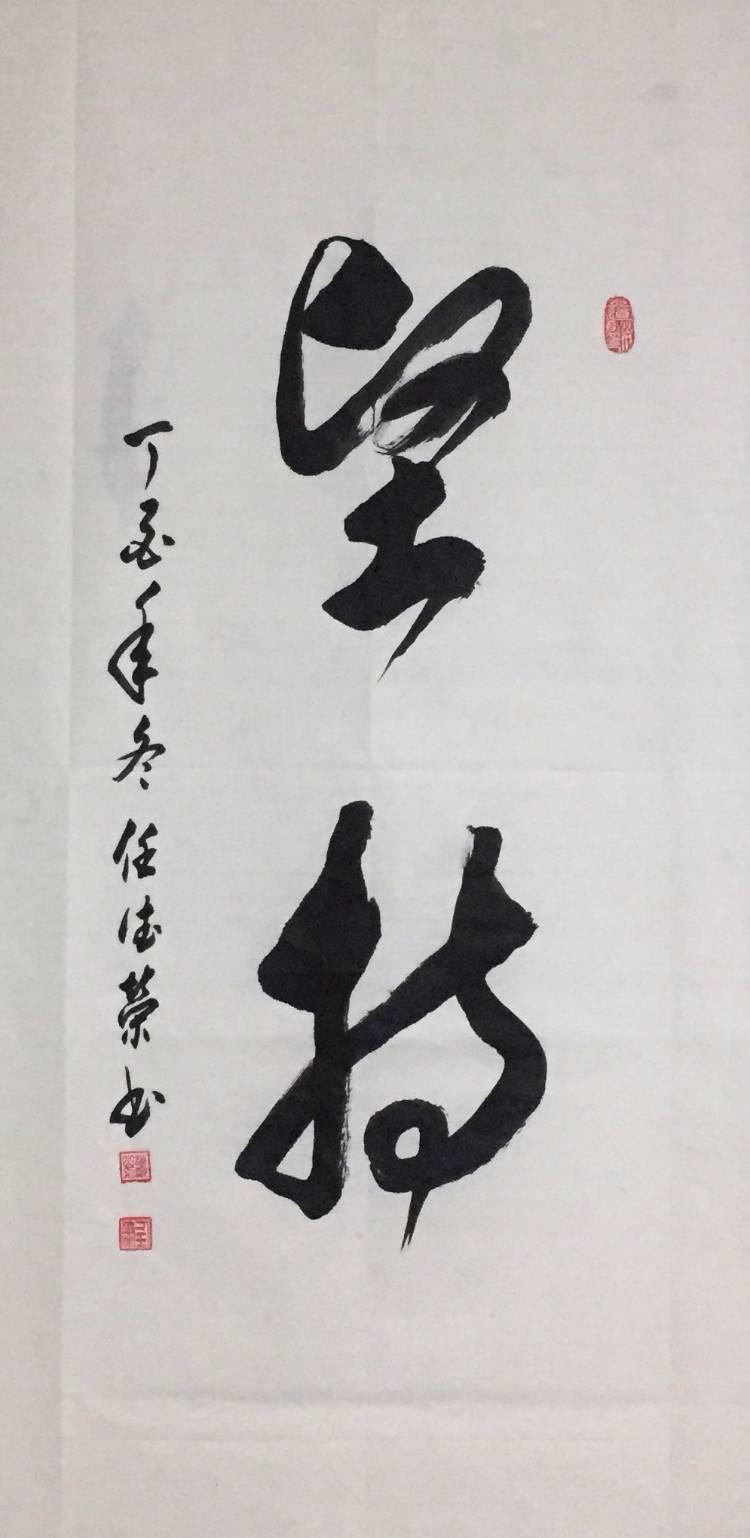 坚持
丁酉年冬任德荣书